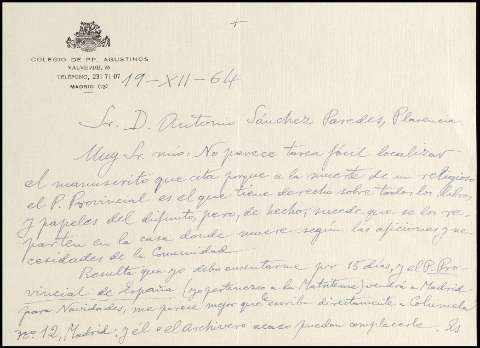 +
COLEGIO DE PP. AGUSTINOS
VALVERDE, 25
TELÉFONO, 231 71 07
MADRID (13)
19-XII-64
Sr. D. Antonio Sánchez Paredes, Plasencia.
Muy Sr. mío: No parece tarea fácil localizar
el manuscrito que cita porque a la muerte de un religioso
el P. Provincial es el que tiene derecho sobre todos los libros
y papeles del difunto, pero, de hecho, sucede que se los re-
parten en la casa donde muere según las aficiones y ne-
cesidades de la Comunidad.
Resulta que yo debo ausentarme por 15 días, y el P. Pro-
vincial de España (yo pertenezco a la Matritense) vendrá a Madrid
para Navidades, me parece mejor que escriba directamente a Columela
nº. 12, Madrid, y él o el Archivero acaso puedan complacerle. Es